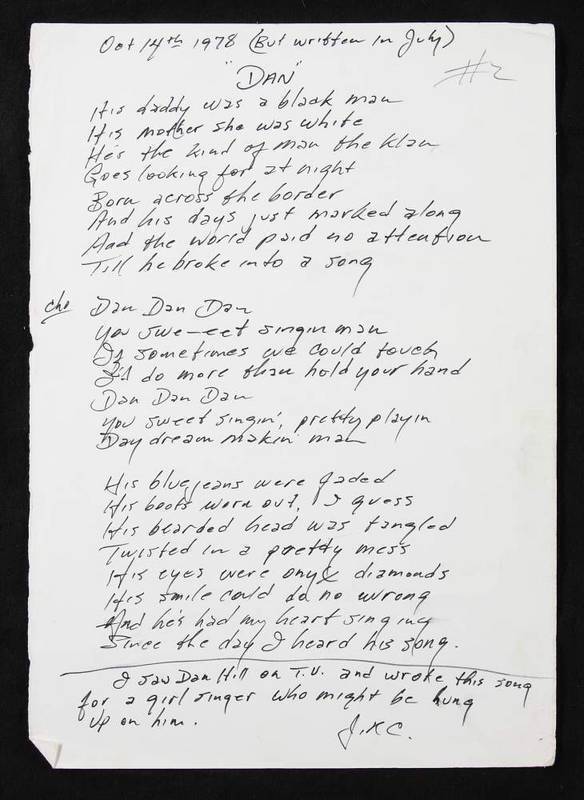 Oct 14th 1978 (But written in July)
"DAN"
#2
His daddy was a black man
His mother she was white
He's the kind of man the Klan
Goes looking for at night
Born across the border
And his days just marked along
And the world paid no attention
Till he broke into a song
cho Dan Dan Dan
You swe-eet singin man
If sometimes we could touch
I'd do more than hold your hand
Dan Dan Dan
You sweet singin', pretty playin
Day dream makin' man
His bluejeans were faded
His boots worn out, I guess
His bearded head was tangled
Twisted in a pretty mess
His eyes were onyx diamonds
His smile could do no wrong
And he's had my heart singing
Since the day I heard his song.
I saw Dan Hill on T.V. and wrote this song
for a girl singer who might be hung
up on him.
J.R.C.